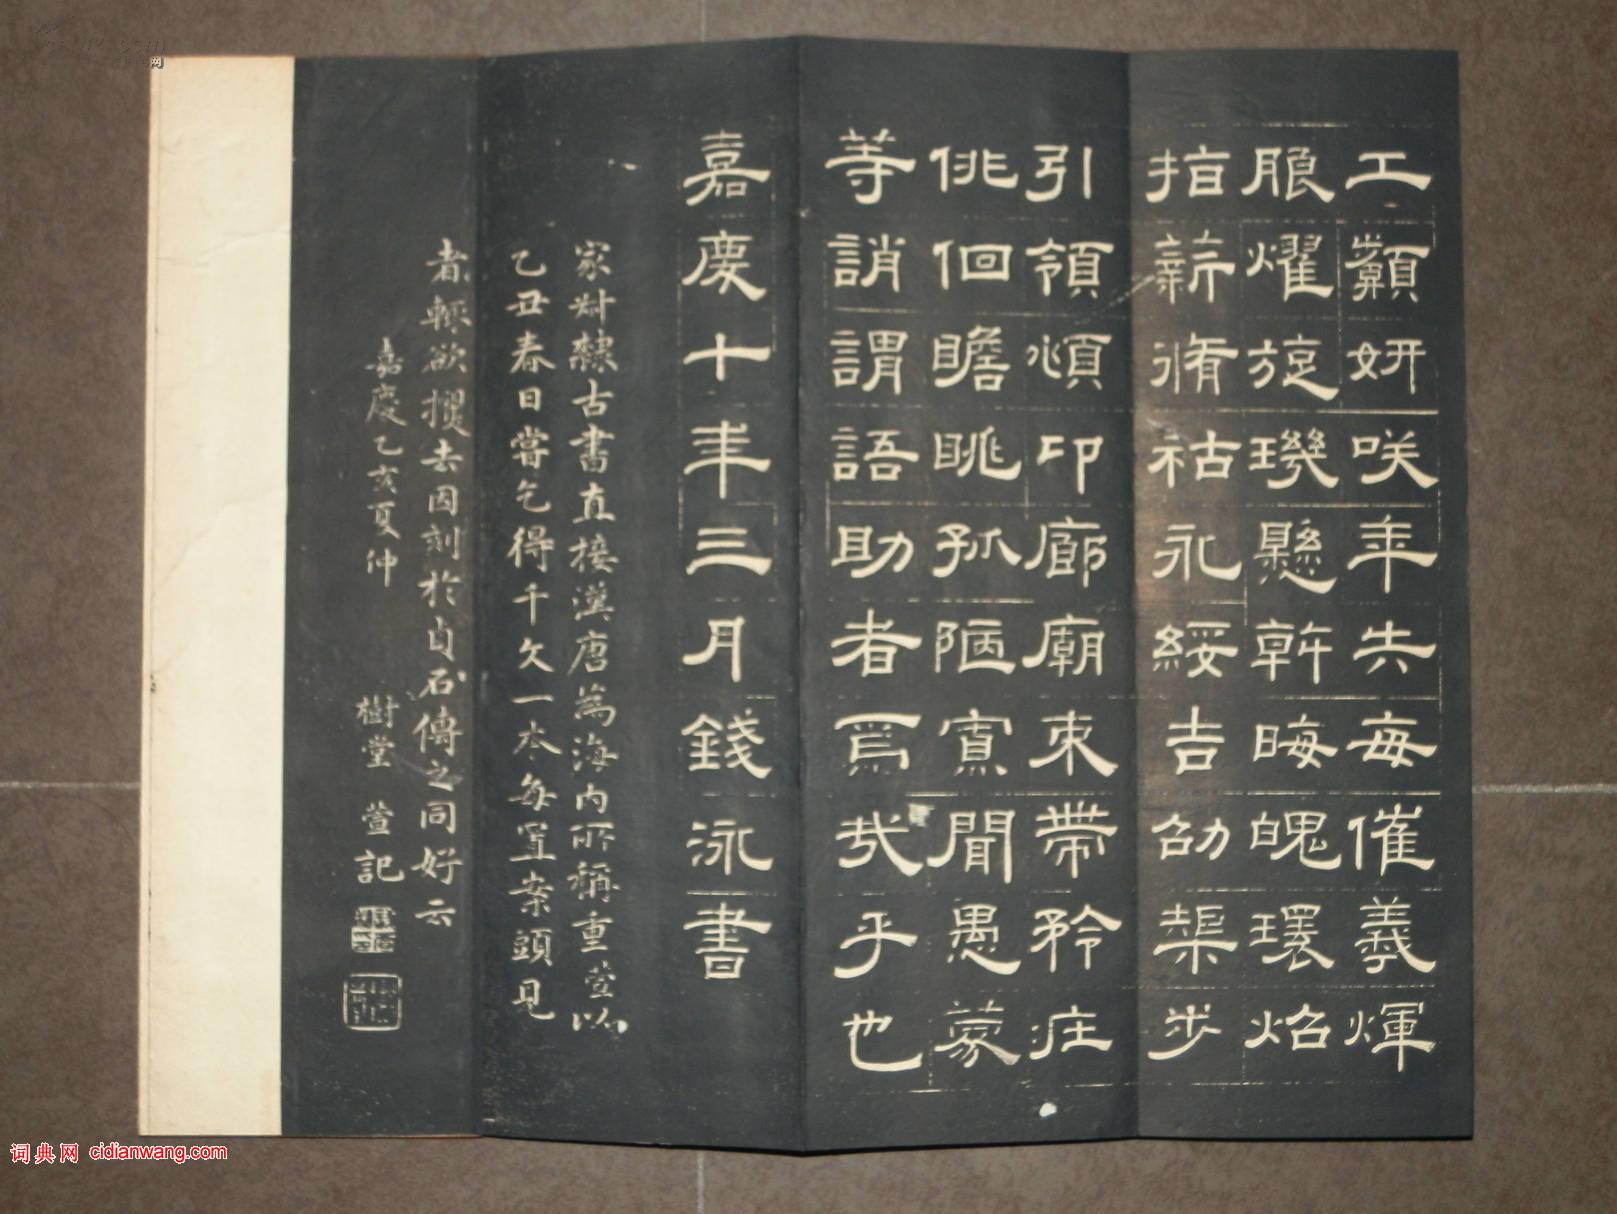 工顰妍咲年矢每催羲煇
朖燿旋璣懸斡晦魄環炤
指薪脩祜永綏吉劭榘步
引領頫卬廊廟束帶矜庄
俳佪瞻眺孤陋寡聞愚蒙
等誚謂語助者焉哉乎也
嘉慶十年三月錢泳書
家尗隸古書直接漢唐為海內所稱重萱以
乙丑春日嘗乞得千文一本每置案頭見
者輒欲攫去因刻於貞石傳之同好云
嘉慶乙亥夏仲 樹堂 萱記
词典网 cidianwang.com